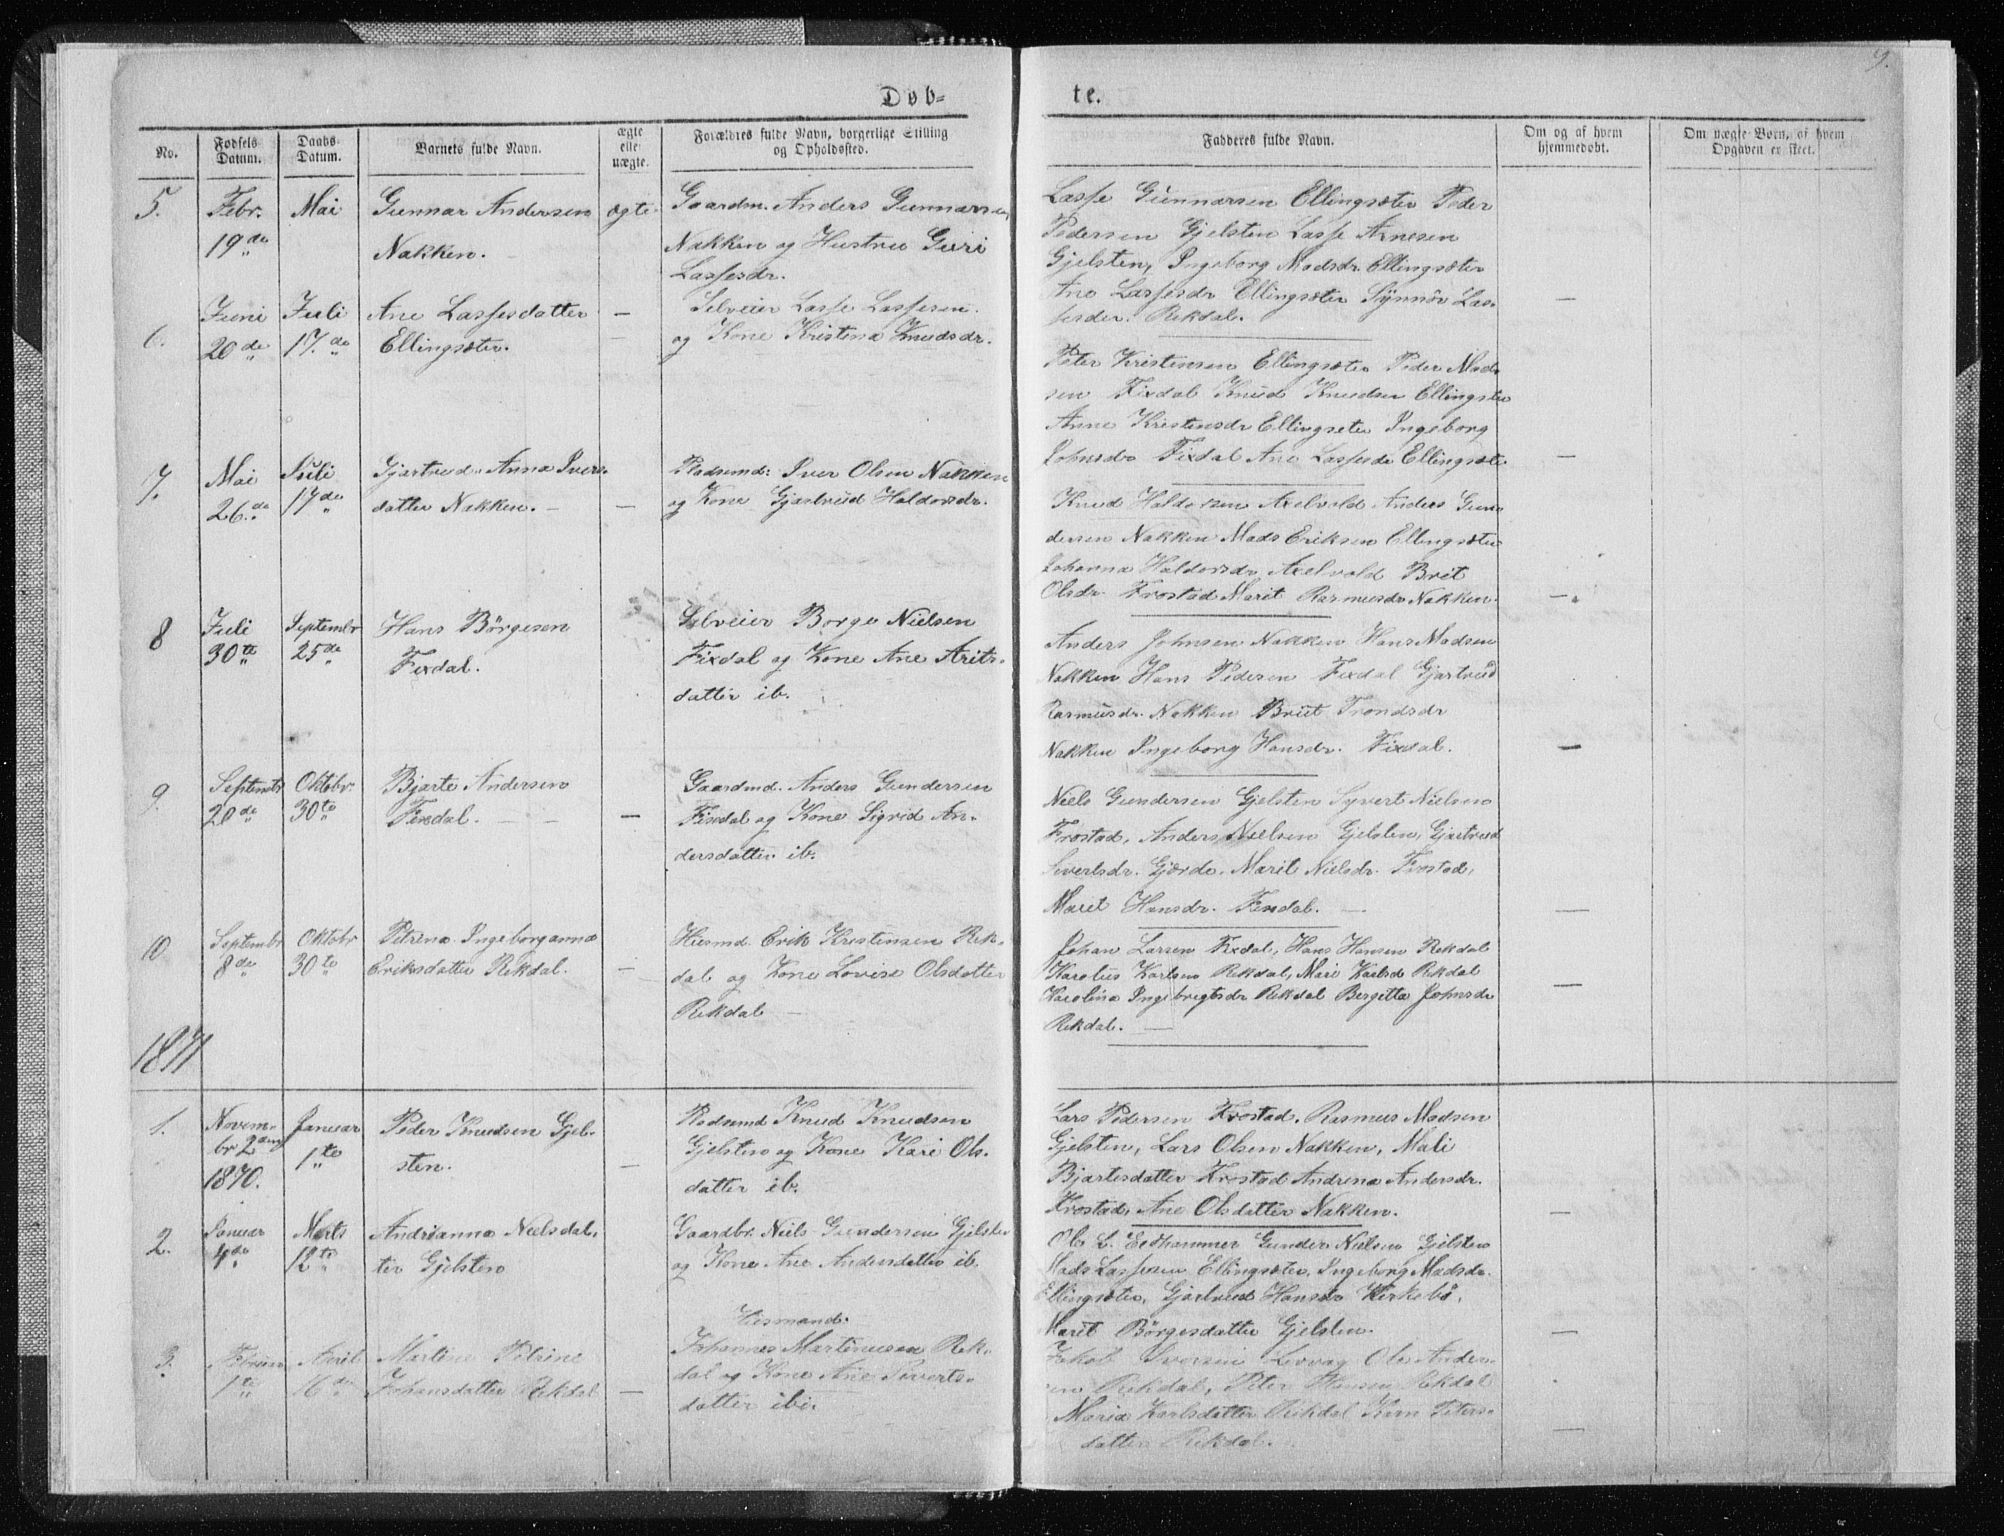 9.
Døb=
te.
No.
Fødsels
Datum.
Daabs
Datum.
Barnets fulde Navn.
ægte
elle
uægte.
Forældres fulde Navn, borgerlige Stilling
og Opholdssted.
Fadderes fulde Navn.
Om og af hvem
hjemmedøbt.
Om uægte Børn, af hvem
Opgaven er skeet.
5.
Febr.
19de
Mai
Gunnar Andersen
Nakken.
ægte
Gaardm. Anders Gunnarsen
Nakken og Hustru Guri
Lassesdr.
Lasse Gunnarsen Ellingsæter Peder
Pedersen Gjelsten Lasse Arnesen
Gjelsten, Ingeborg Madsdr. Ellingsæter
Ane Lassesdr Ellingsæter Synnöv Las-
sesdr. Rekdal.
6.
Juni
20de
Juli
17.de
Ane Lassesdatter
Ellingsæter.
—
Selveier Lasse Lassesen.
og Kone Kristina Knudsdr.
—
Peter Kristensen Ellingsæter Peder Mad-
sen Fixdal Knud Knudsen Ellingsæter
Anne Kristensdr Ellingseter Ingeborg
Johnsdr Fixdal Ane Lassesdr Ellingsæter
—
7.
Mai
26.de
Juli
17de
Gjartrud Anna Ivers-
datter Nakken. —
—
Pladsmd. Iver Olsen Nakken
og Kone Gjartrud Haldorsdr.
Knud Haldorsen Axelvold Anders Gun-
dersen Nakken Mads Eriksen Ellingsæter
Johanna Haldorsdr Axelvold Brit
Olsdr. Frostad Marit Rasmusdr Nakken.
—
8
Juli
30te
Septembr
25de
Hans Börgesen
Fixdal.
Selveier Borge Nielsen
Fixdal og Kone Ane Arits-
datter ib.
Anders Johnsen Nakken Hans Madsen
Nakken Hans Pedersen Fixdal Gjartrud
Rasmusdr. Nakken Brit Trondsdr
Nakken Ingeborg Hansdr. Fixdal.
—
9.
Septembr
20de
Oktobr.
30te
Bjarte Andersen
Fixdal. — —
—
Gaardmd. Anders Gundersen
Fixdal og Kone Sigrid An-
dersdatter ib.
Niels Gundersen Gjelsten Syvert Nielsen
Frostad, Anders Nielsen Gjelsten, Gjartrud
Sivertsdr. Gjærde, Marit Nielsdr. Frostad,
Marit Hansdr. Fixdal. —
—
10
Septembr
8de
Oktobr
30te
Petrina Ingeborganna
Eriksdatter Rekdal.
—
Husmd. Erik Kristensen Rek-
dal og Kone Lovise Olsdatter
Rekdal —
Johan Larsen Fixdal, Hans Hansen Rekdal
Karolus Karlsen Rekdal, Mari Karlsd Rekdal
Karolina Ingebrigtsdr Rekdal Bergitta Johnsdr
Rekdal. —
—
1871
1.
Novem-
br 2den
1870.
Januar
1te
Peder Knudsen Gjel-
sten.
—
Pladsmd Knud Knudsen
Gjelsten og Kone Kari Ols-
datter ib.
Lars Pedersen Frostad. Rasmus Madsen
Gjelsten, Lars Olsen Nakken, Mali
Bjartesdatter Frostad Andrina Andersdr.
Frostad, Ane Olsdatter Nakken.
—
2.
Januar
4de
Marts
12te
Andrianna Nielsdat-
ter Gjelsten
Gaardbr. Niels Gundersen Gjelsten
og Kone Ane Andersdatter ib.
Ole L. Eidhammer Gunder Nielsen Gjelsten
Mads Lassesen Ellingsæter, Ingeborg Madsdr.
Ellingsæter, Gjartrud Hansdr Kirkebö,
Marit Börgesdatter Gjelsten.
—
3.
1te
April
16de
Martine Petrine
Johansdatter Rekdal
—
Husmand.
Johannes Martinusen Rek-
dal og Kone Ane Siverts-
datter ibi.
Jakob Iversen Levvag Ole Ander-
sen Rekdal, Peter Hansen Rekdal
Maria Karlsdatter Rekdal Peters-
datter Rekdal.
—